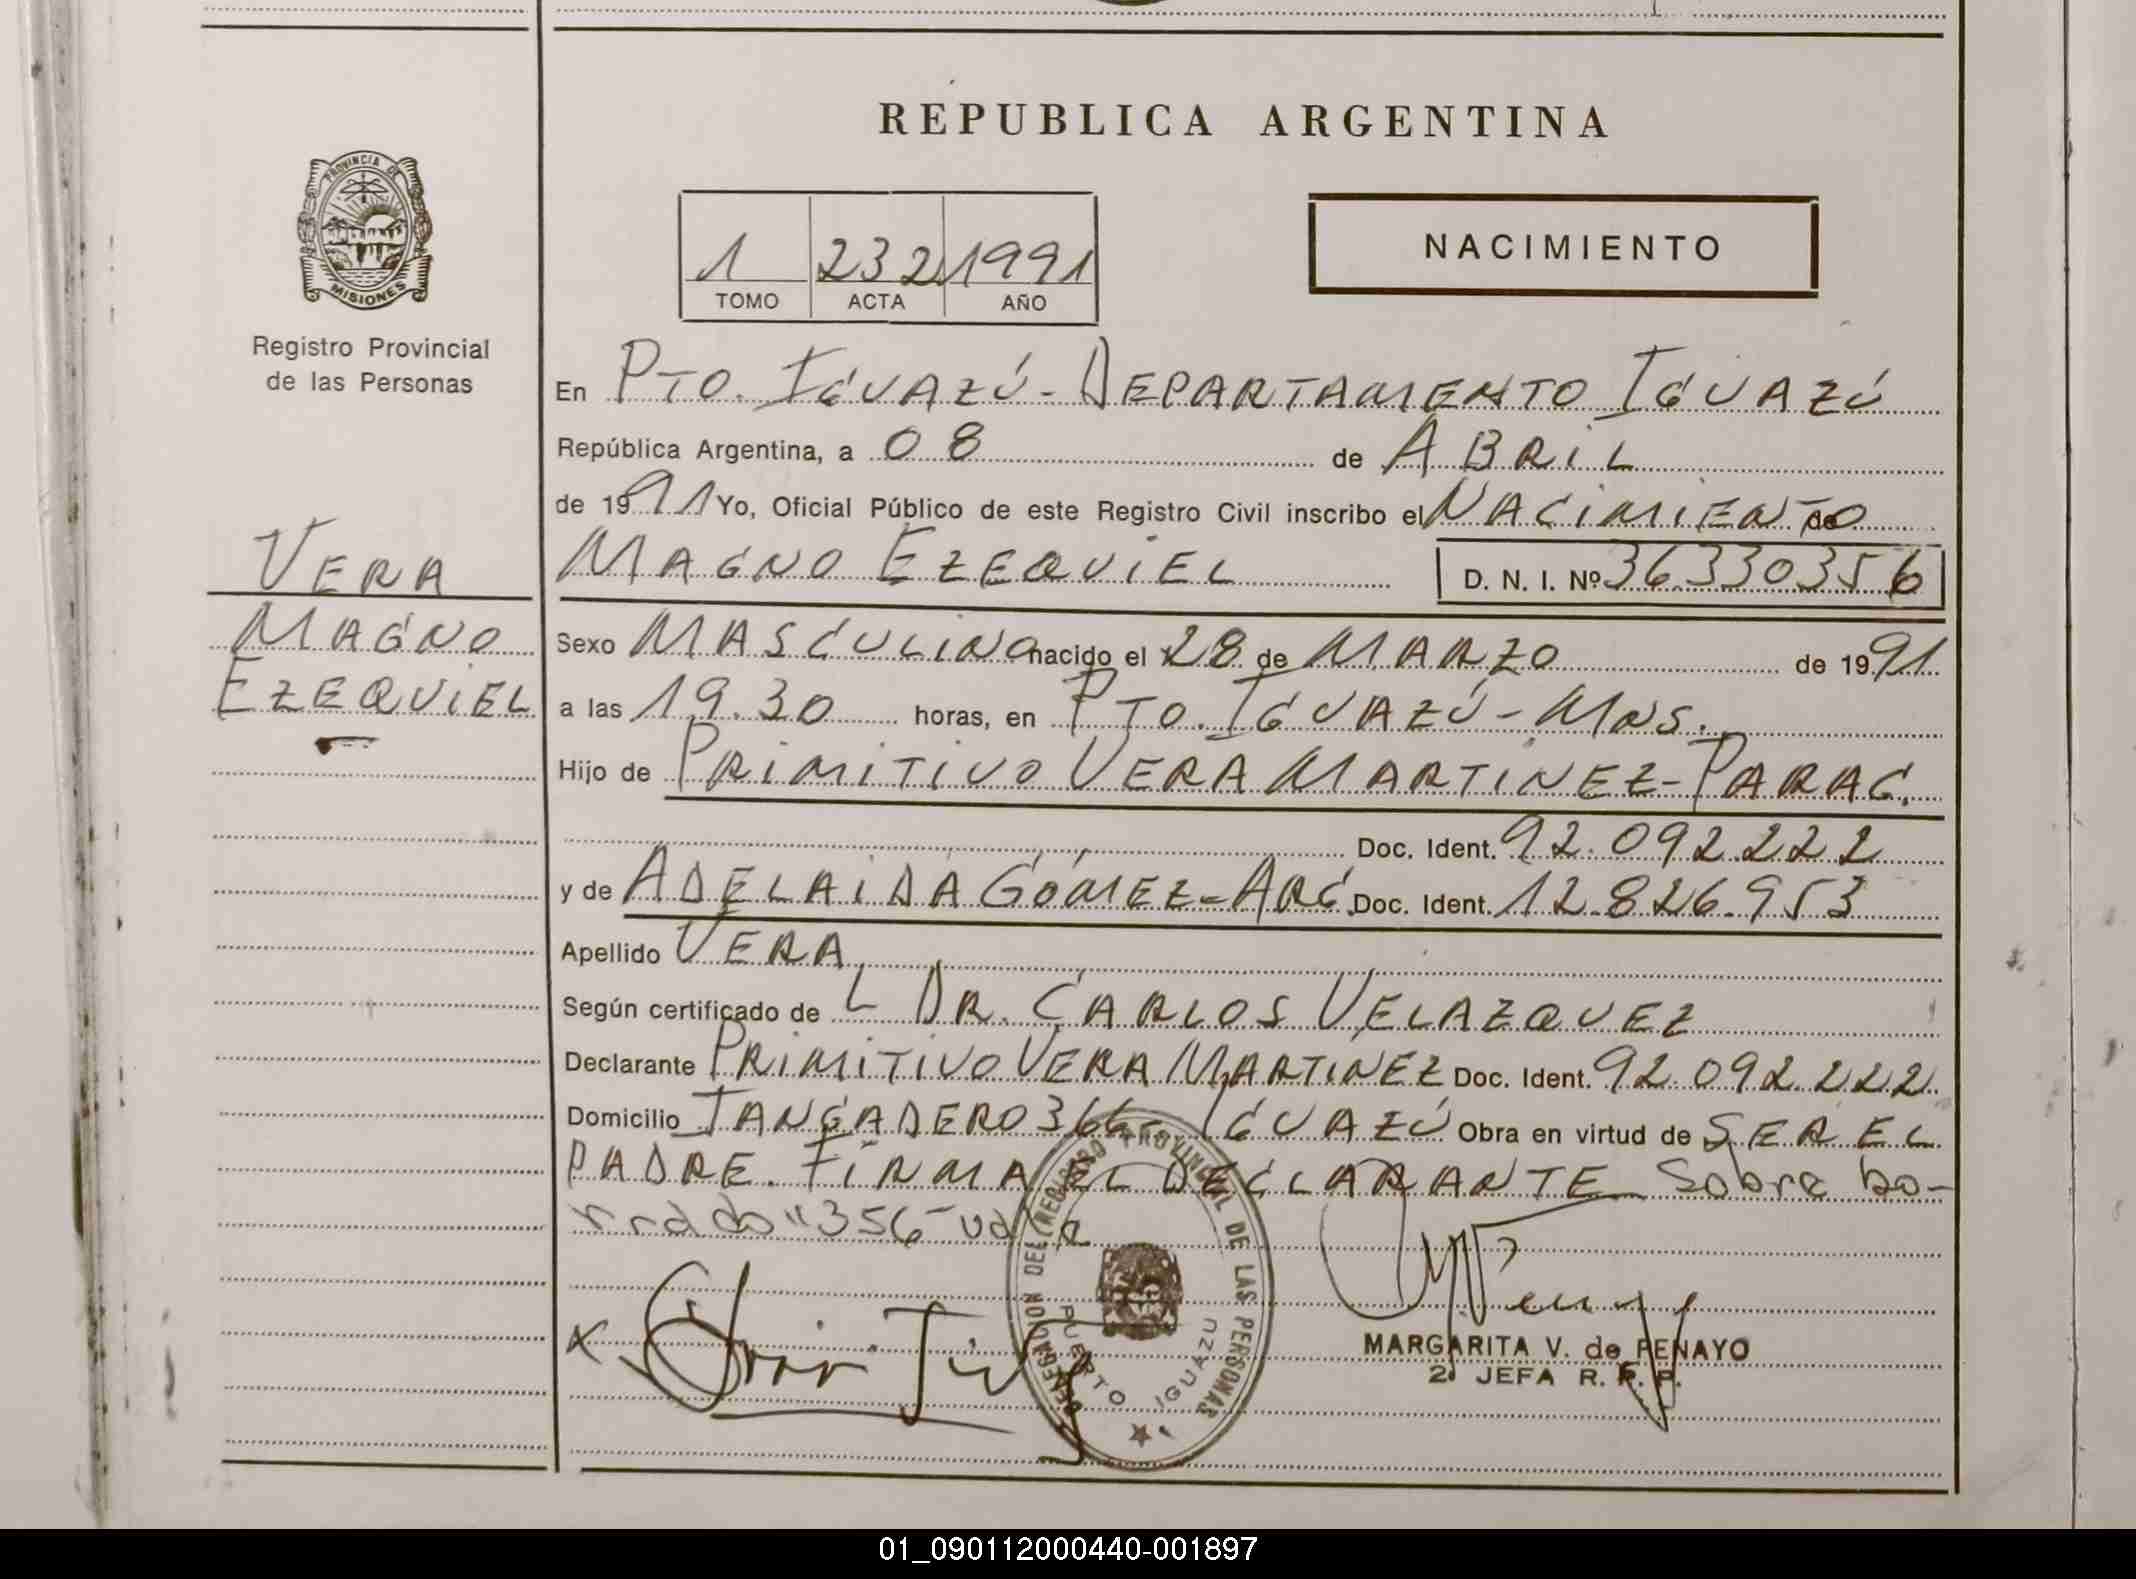 REPUBLICA ARGENTINA
PROVINCIA DE
MISIONES
Registro Provincial
de las Personas
1 232 1991
TOMO ACTA AÑO
NACIMIENTO
En PTO. IGUAZÚ - DEPARTAMENTO IGUAZÚ
República Argentina, a 08 de ABRIL
de 1991 Yo, Oficial Público de este Registro Civil inscribo el NACIMIENTO de
MAGNO EZEQUIEL D. N. I. Nº 36.330.356
VERA
MAGNO
EZEQUIEL
Sexo MASCULINO nacido el 28 de MARZO de 1991
a las 19.30 horas, en PTO. IGUAZÚ - MNS.
Hijo de PRIMITIVO VERA MARTINEZ - PARAG.
Doc. Ident. 92.092.222
y de ADELAIDA GÓMEZ - ARG. Doc. Ident. 12.826.953
Apellido VERA
Según certificado de L DR. CARLOS VELAZQUEZ
Declarante PRIMITIVO VERA MARTINEZ Doc. Ident. 92.092.222
Domicilio TANGADERO 366 - IGUAZÚ Obra en virtud de SER EL
PADRE. FIRMA EL DECLARANTE Sobre bo-
rrado "356" vale
REGISTRO PROVINCIAL DE LAS PERSONAS
PUERTO IGUAZU
MARGARITA V. de PENAYO
2ª JEFA R. P. P.
01_090112000440-001897